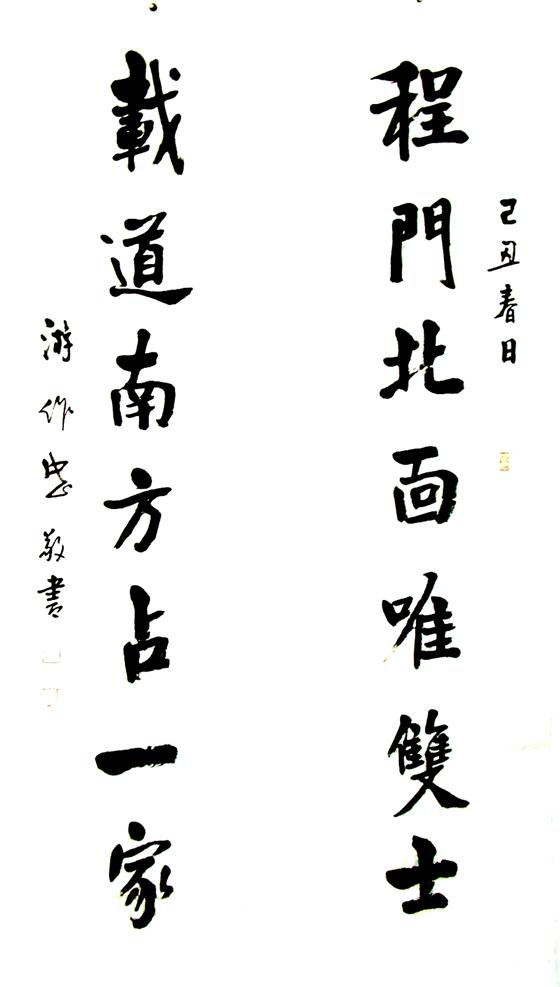 己丑春日
程門北面唯雙士
載道南方占一家
游作忠敬書